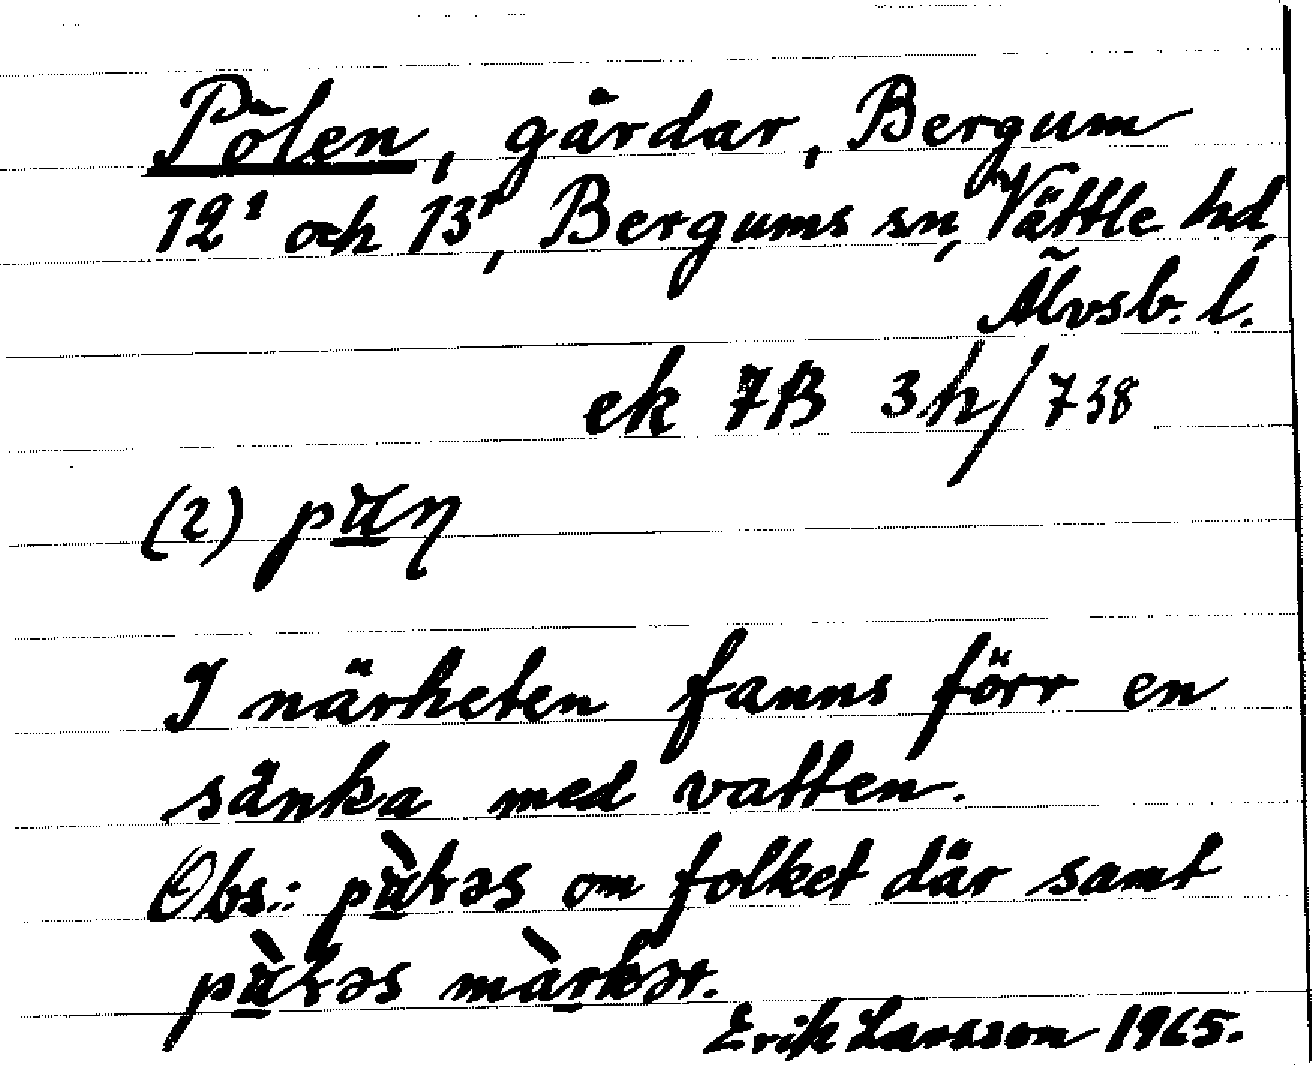 Pölen, gårdar, Bergum
12¹ och 13¹, Bergums sn, Vättle hd,
Älvsb. l.
ek 7B 3h/738
(2)
I närheten fanns förr en
sänka med vatten.
Obs.: om folket där samt
Erik Larsson 1965.